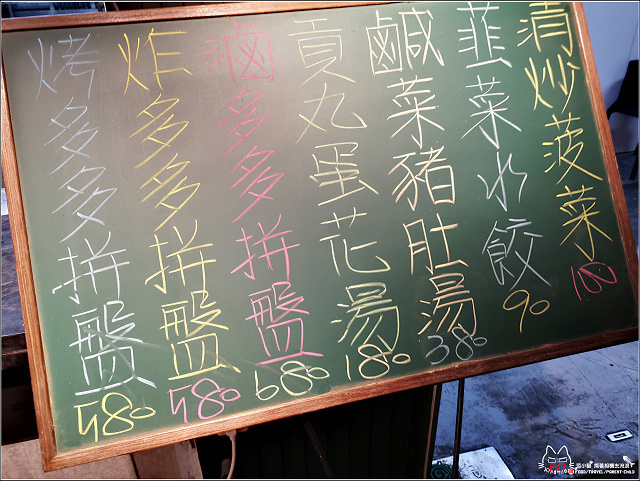 清炒菠菜 100
韭菜水餃 90
鹹菜豬肚湯 380
貢丸蛋花湯 180
滷多多拼盤 680
炸多多拼盤 580
烤多多拼盤 580
FOOD/TRAVEL/PARENT-CHILD